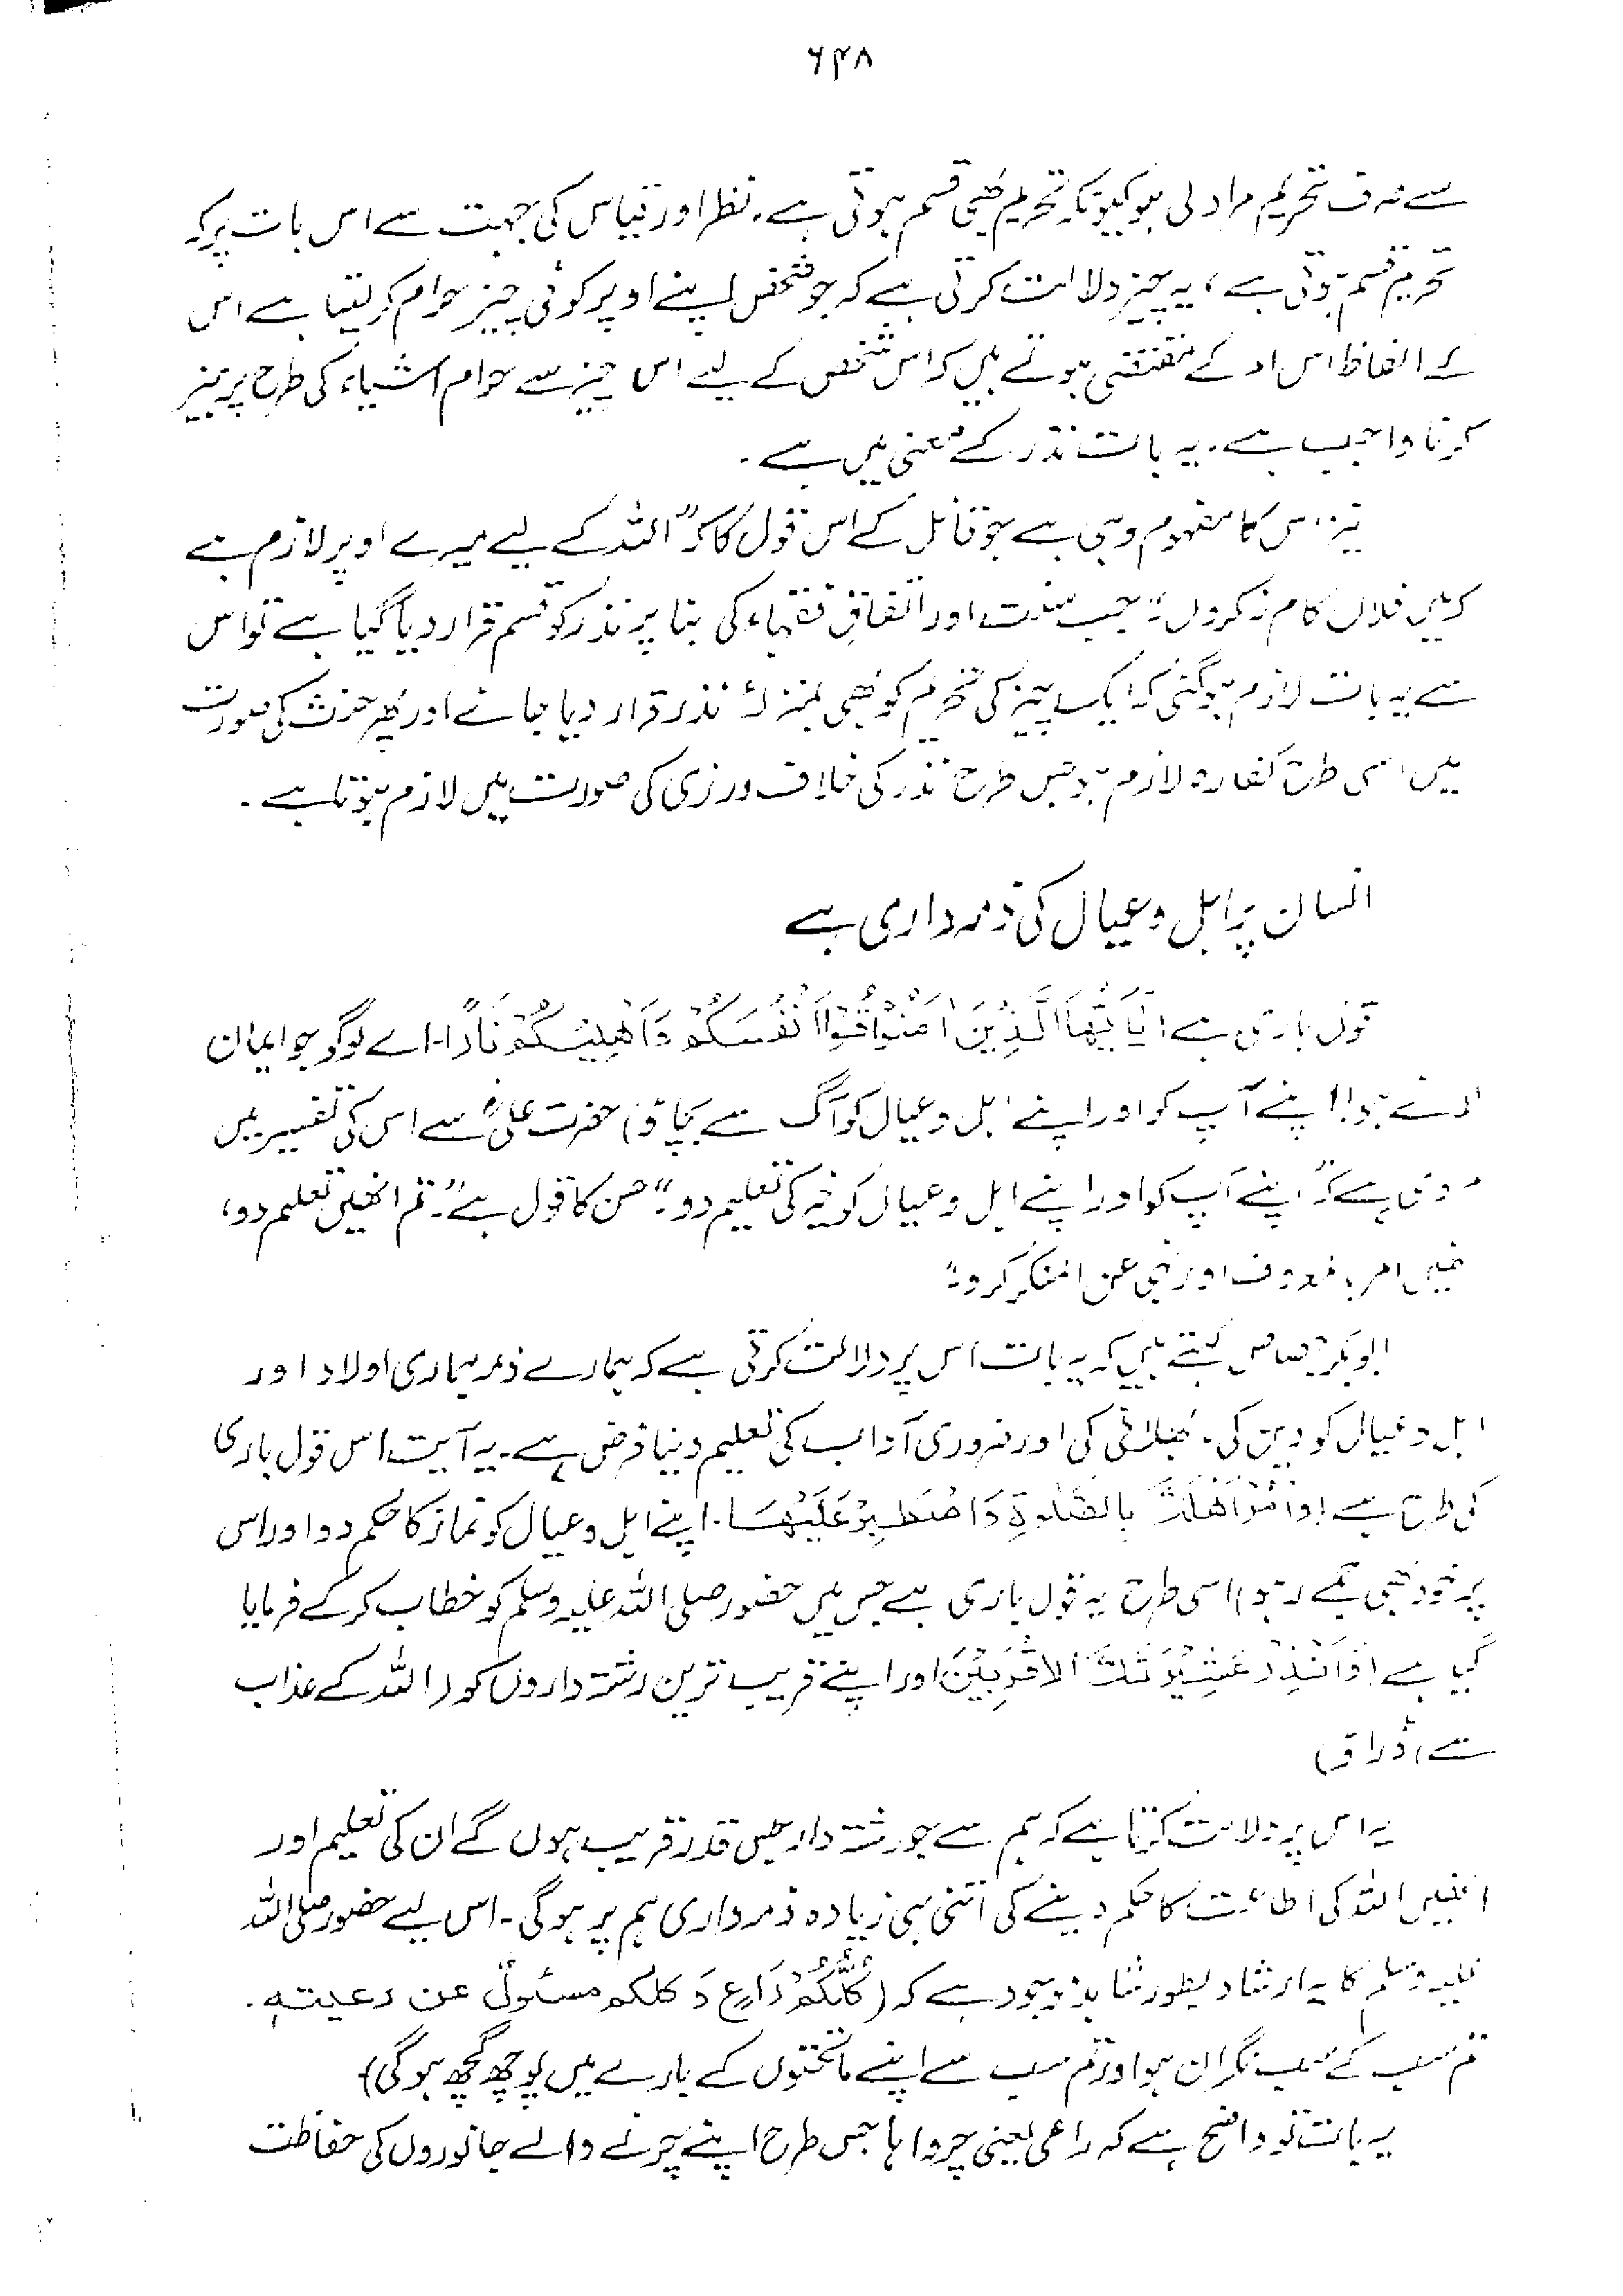 ۶۴۸
سے صرف تحریم مراد لی ہو کیونکہ تحریم بھی قسم ہوتی ہے۔ نظر اور قیاس کی جہت سے اس بات پر کہ
تحریم قسم ہوتی ہے، یہ چیز دلالت کرتی ہے کہ جو شخص اپنے اوپر کوئی چیز حرام کر لیتا ہے اس
کے الفاظ اس امر کے مقتضی ہوتے ہیں کہ اس شخص کے لیے اس چیز سے حرام اشیاء کی طرح پرہیز
کرنا واجب ہے۔ یہ بات نذر کے معنی میں ہے۔
نیز اس کا مفہوم وہی ہے جو قائل کے اس قول کا کہ "اللہ کے لیے میرے اوپر لازم ہے
کہ میں فلاں کام نہ کروں"۔ جب سنت اور اتفاقِ فقہاء کی بنا پر نذر کو قسم قرار دیا گیا ہے تو اس
سے یہ بات لازم ہو گئی کہ ایک چیز کی تحریم کو بھی بمنزلۂ نذر قرار دیا جائے اور پھر حنث کی صورت
میں اسی طرح کفارہ لازم ہو جس طرح نذر کی خلاف ورزی کی صورت میں لازم ہوتا ہے۔
انسان پر اہل و عیال کی ذمہ داری ہے
قول باری ہے (یٰٓاَیُّهَا الَّذِیْنَ اٰمَنُوْا قُوْٓا اَنْفُسَكُمْ وَاَهْلِیْكُمْ نَارًا۔ اے لوگو جو ایمان
لائے ہو! اپنے آپ کو اور اپنے اہل و عیال کو آگ سے بچاؤ) حضرت علیؓ سے اس کی تفسیر میں
مروی ہے کہ "اپنے آپ کو اور اپنے اہل و عیال کو خیر کی تعلیم دو"۔ حسن کا قول ہے "تم انھیں تعلیم دو،
انھیں امر بالمعروف اور نہی عن المنکر کرو"۔
ابوبکر جصاص کہتے ہیں کہ یہ بات اس پر دلالت کرتی ہے کہ ہمارے ذمہ ہماری اولاد اور
اہل و عیال کو دین کی، بھلائی کی اور ضروری آداب کی تعلیم دینا فرض ہے۔ یہ آیت اس قول باری
کی طرح ہے (وَأْمُرْ اَهْلَكَ بِالصَّلٰوةِ وَاصْطَبِرْ عَلَیْهَا۔ اپنے اہل و عیال کو نماز کا حکم دو اور اس
پر خود بھی جمے رہو) اسی طرح یہ قول باری ہے جس میں حضور صلی اللہ علیہ وسلم کو خطاب کر کے فرمایا
گیا ہے (وَاَنْذِرْ عَشِیْرَتَكَ الْاَقْرَبِیْنَ اور اپنے قریب ترین رشتہ داروں کو (اللہ کے عذاب
سے) ڈراؤ)
یہ اس پر دلالت کرتا ہے کہ ہم سے جو رشتہ دار جس قدر قریب ہوں گے ان کی تعلیم اور
انھیں اللہ کی اطاعت کا حکم دینے کی اتنی ہی زیادہ ذمہ داری ہم پر ہو گی۔ اس لیے حضور صلی اللہ
علیہ وسلم کا یہ ارشاد بطور شاہد موجود ہے کہ (كُلُّكُمْ رَاعٍ وَ كلكم مسئولٌ عن رعيته۔
تم سب کے سب نگران ہو اور تم سب سے اپنے ماتحتوں کے بارے میں پوچھ گچھ ہو گی)
یہ بات تو واضح ہے کہ راعی یعنی چرواہا جس طرح اپنے چرنے والے جانوروں کی حفاظت